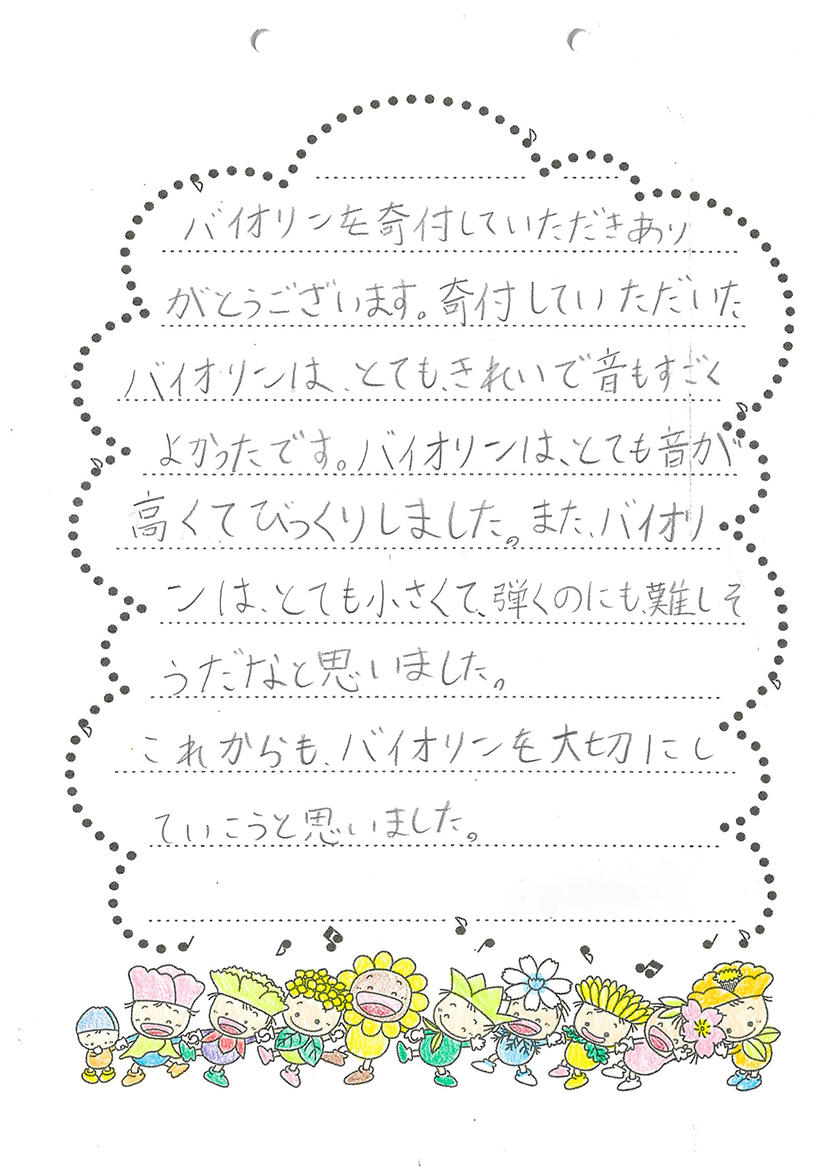 バイオリンを寄付していただきあり
がとうございます。寄付していただいた
バイオリンは、とても、きれいで音もすごく
よかったです。バイオリンは、とても音が
高くてびっくりしました。また、バイオリ
ンは、とても小さくて、弾くのにも、難しそ
うだなと思いました。
これからも、バイオリンを大切にし
ていこうと思いました。